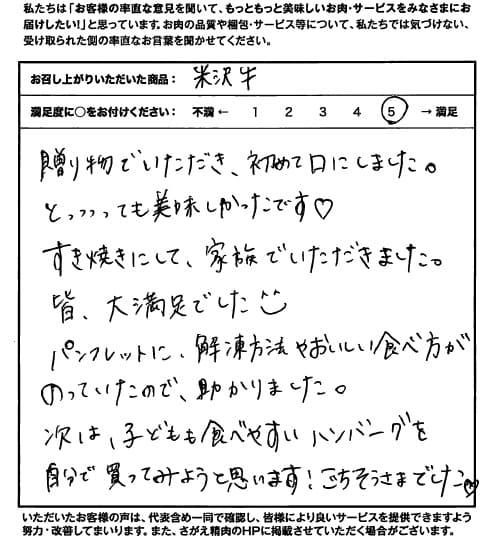 私たちは「お客様の率直な意見を聞いて、もっともっと美味しいお肉・サービスをみなさまにお
届けしたい!」と思っています。お肉の品質や梱包・サービス等について、私たちでは気づけない、
受け取られた側の率直なお言葉を聞かせてください。
お召し上がりいただいた商品： 米沢牛
満足度に○をお付けください： 不満 ← 1 2 3 4 5 → 満足
贈り物でいただき、初めて口にしました。
とっっっっても美味しかったです♡
すき焼きにして、家族でいただきました。
皆、大満足でした
パンフレットに、解凍方法やおいしい食べ方が
のっていたので、助かりました。
次は、子どもも食べやすいハンバーグを
自分で買ってみようと思います！ごちそうさまでした♡
いただいたお客様の声は、代表含め一同で確認し、皆様により良いサービスを提供できますよう
努力・改善してまいります。また、さがえ精肉のHPに掲載させていただく場合がございます。